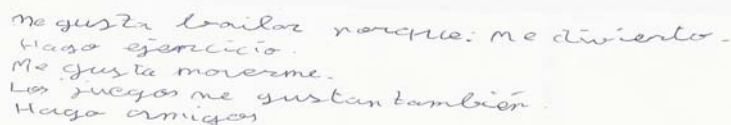 me gusta bailar porque: me divierto.
Hago ejercicio.
Me gusta moverme.
Los juegos me gustan también.
Hago amigos